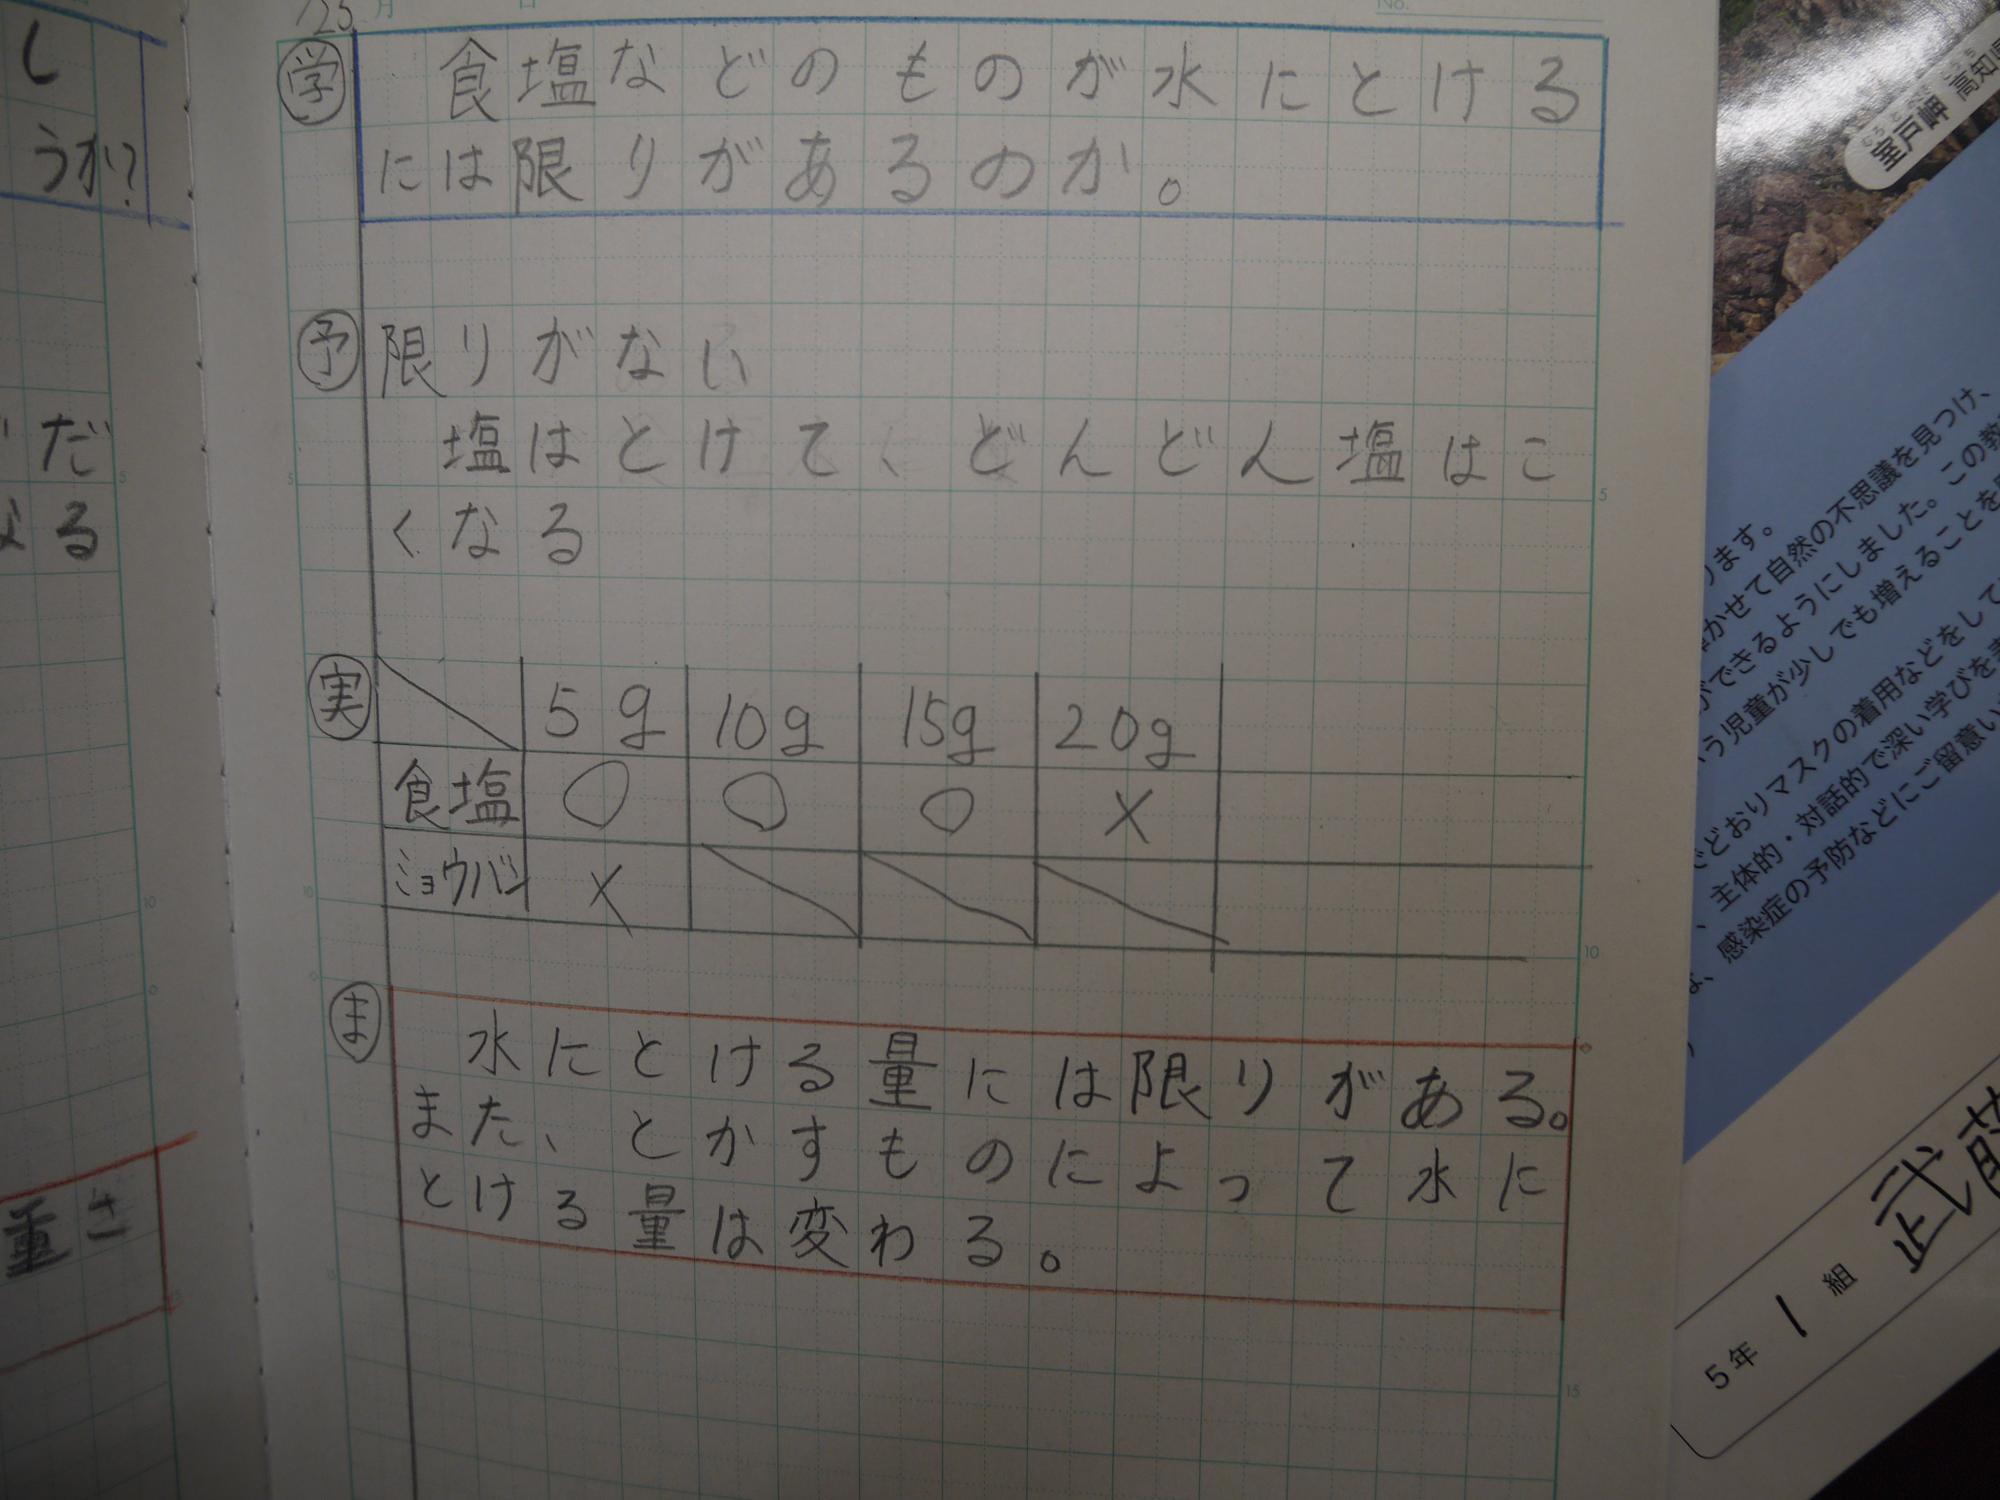 し
うか?
だ
なる
重さ
/25 月 日 No.
学 食塩などのものが水にとける
には限りがあるのか。
予 限りがない
塩はとけて、どんどん塩はこ
くなる
実 5g 10g 15g 20g
食塩 ○ ○ ○ ×
ミョウバン ×
ま 水にとける量には限りがある。
また、とかすものによって水に
とける量は変わる。
5
5
10
10
15
室戸岬 高知県
ります。
かせて自然の不思議を見つけ、
できるようにしました。この教
う児童が少しでも増えることを
どおりマスクの着用などをして
、主体的・対話的で深い学びを
感染症の予防などにご留意い
5年 1 組 武